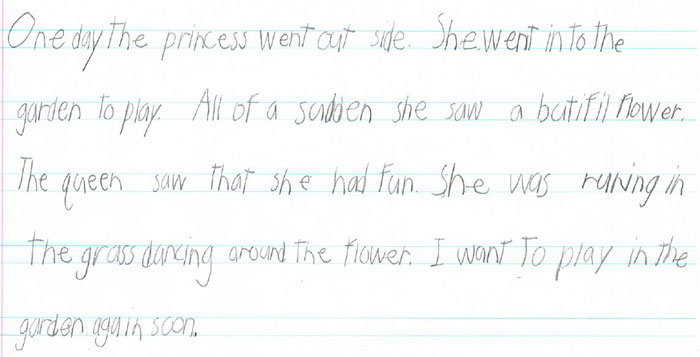 One day the princess went out side. She went in to the
garden to play. All of a sudden she saw a butifil flower.
The queen saw that she had fun. She was runing in
the grass dancing around the flower. I want to play in the
garden again soon.